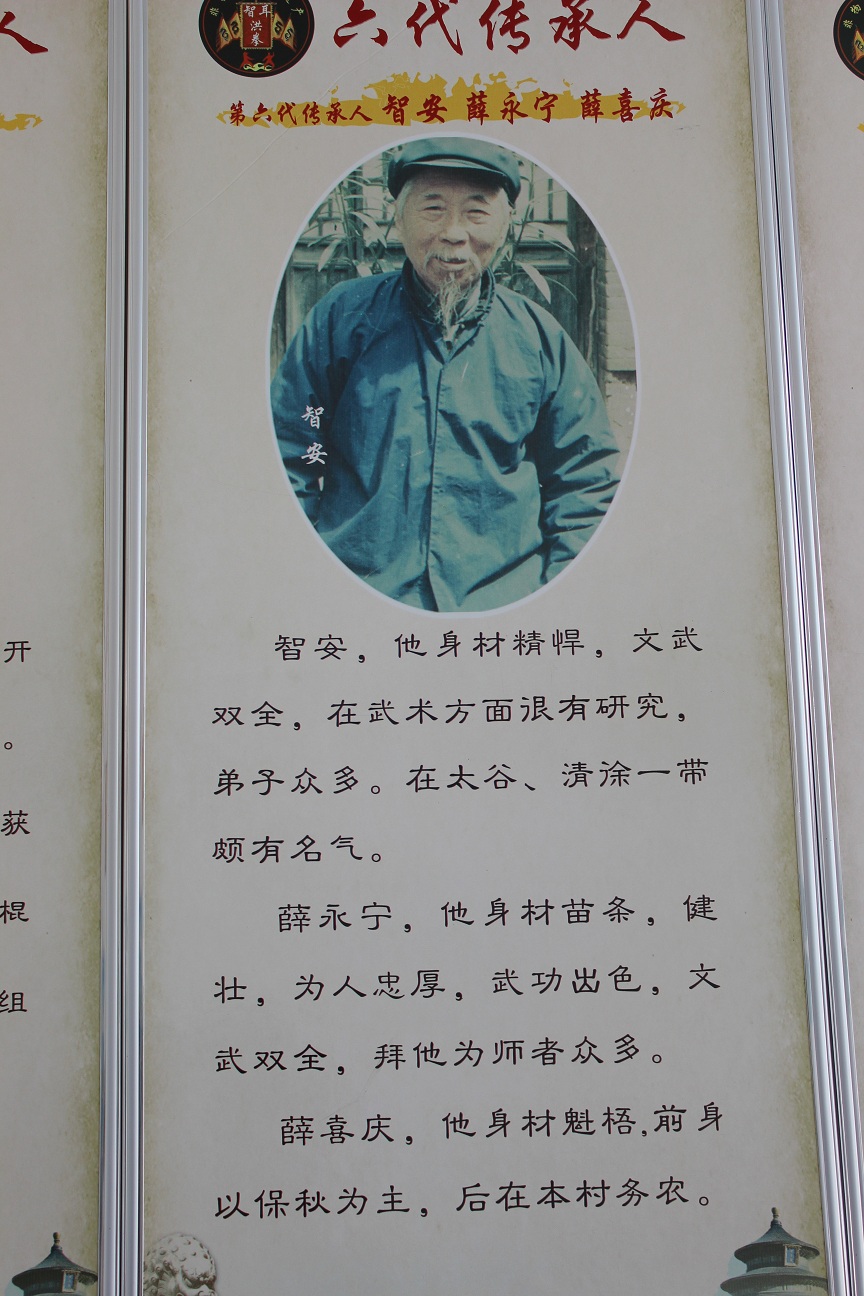 人
智耳
洪
拳
六代传承人
第六代传承人 智安 薛永宁 薛喜庆
智
安
智安，他身材精悍，文武
双全，在武术方面很有研究，
弟子众多。在太谷、清徐一带
颇有名气。
薛永宁，他身材苗条，健
壮，为人忠厚，武功出色，文
武双全，拜他为师者众多。
薛喜庆，他身材魁梧,前身
以保秋为主，后在本村务农。
开
。
获
棍
组